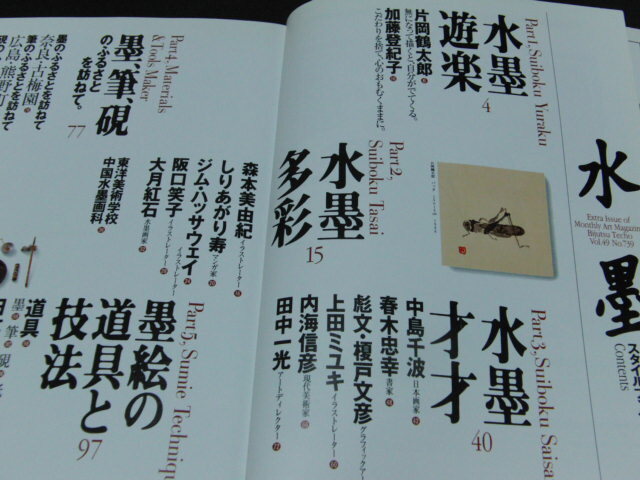 水墨
Extra Issue of
Monthly Art Magazine
Bijutsu Techo
Vol.49 No.739
スタイル
Contents
Part1, Suiboku Yuraku
水墨
遊楽
4
片岡鶴太郎
無になって描くと、自分がでてくる。
加藤登紀子
こだわりを捨て、心のおもむくままに。
Part2,
Suiboku Tasai
水墨
多彩
15
森本美由紀 イラストレーター
しりあがり寿 マンガ家
ジム・ハサウェイ イラストレーター
阪口笑子 イラストレーター
大月紅石 水墨画家
東洋美術学校
中国水墨画科
Part3, Suiboku Saisai
水墨
才才
40
中島千波 日本画家
春木忠幸 書家
彪文・榎戸文彦 グラフィックアー
上田ミユキ イラストレーター
内海信彦 現代美術家
田中一光 アートディレクター
Part4, Materials
& Tools Maker
墨、筆、硯
のふるさと
を訪ねて。
77
墨のふるさとを訪ねて
奈良・古梅園
筆のふるさとを訪ねて
広島・熊野町
Part5, Sumie Technique
墨絵の
道具と
技法
97
道具
墨 筆 硯